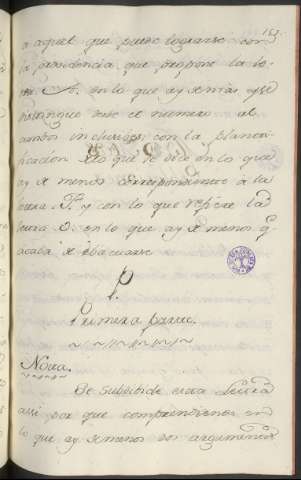 a aquel que puede lograrse con
la providencia que propone la le-
tra en lo que ay de mas, y se
distingue este el numero al
ambos inclusive, con la planca
ficacion de lo que se dice en lo que
ay de menos correspondiente à la
letra y con lo que refiere la
letra O. en lo que ay de menos q.
acaba de evacuarse
P.
Primera parte.
Nota.
Se subdivide esta Letra
assi por que comprendiendo en
lo que ay de menos dos argumentos